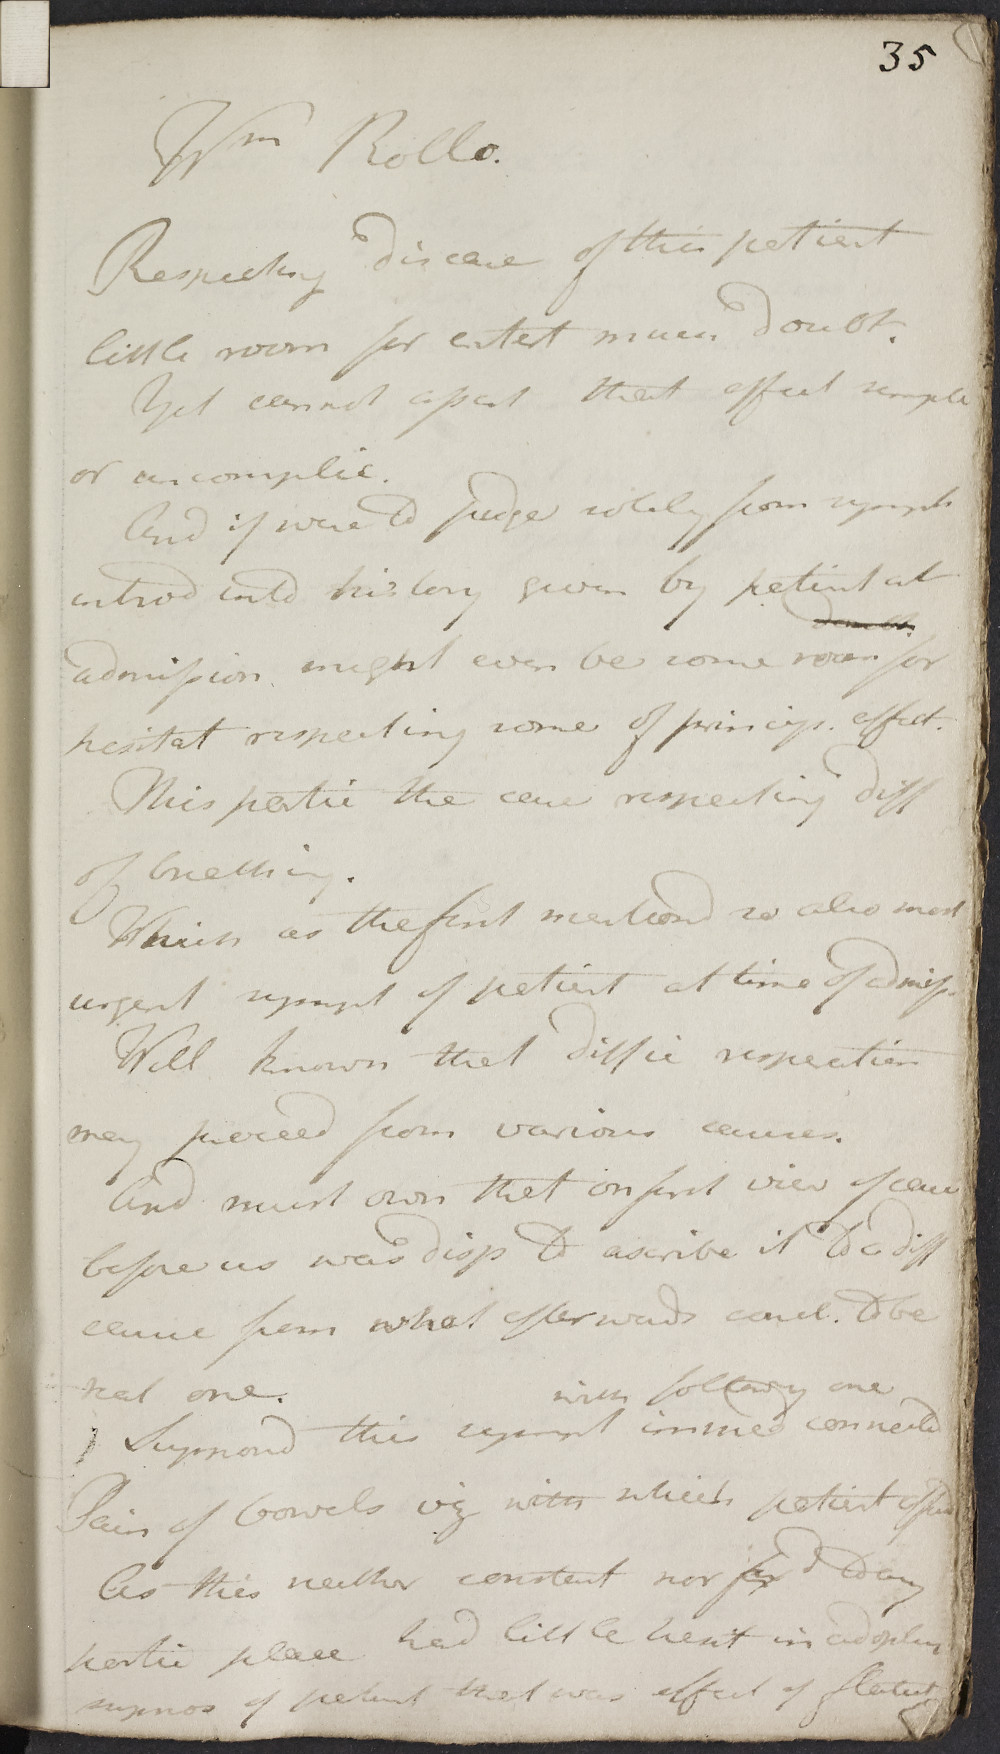 35
Wm Rollo.
Respecting disease of this patient
little room for entert much doubt.
Yet cannot assert that affect simple
or uncomplic.
And if were to judge solely from sympts
introd into history given by patient at
doubt.
admission might even be some room for
hesitat respecting some of princip. affect.
This partic the case respecting diff
of breathing.
Which as the first mentiond so also most
urgent sympt of patient at time of admiss.
Well known that diffic respiration
may proceed from various causes.
And must own that on first view of case
before us was disp to ascribe it to a diff
cause from what afterwards concl. to be
real one.
with following one
Supposd this sympt immed connected
Pain of bowels viz with which patient affec
As this neither constant nor fixd to any
partic place had little hesit in adopting
suppos of patient that was effect of flatul